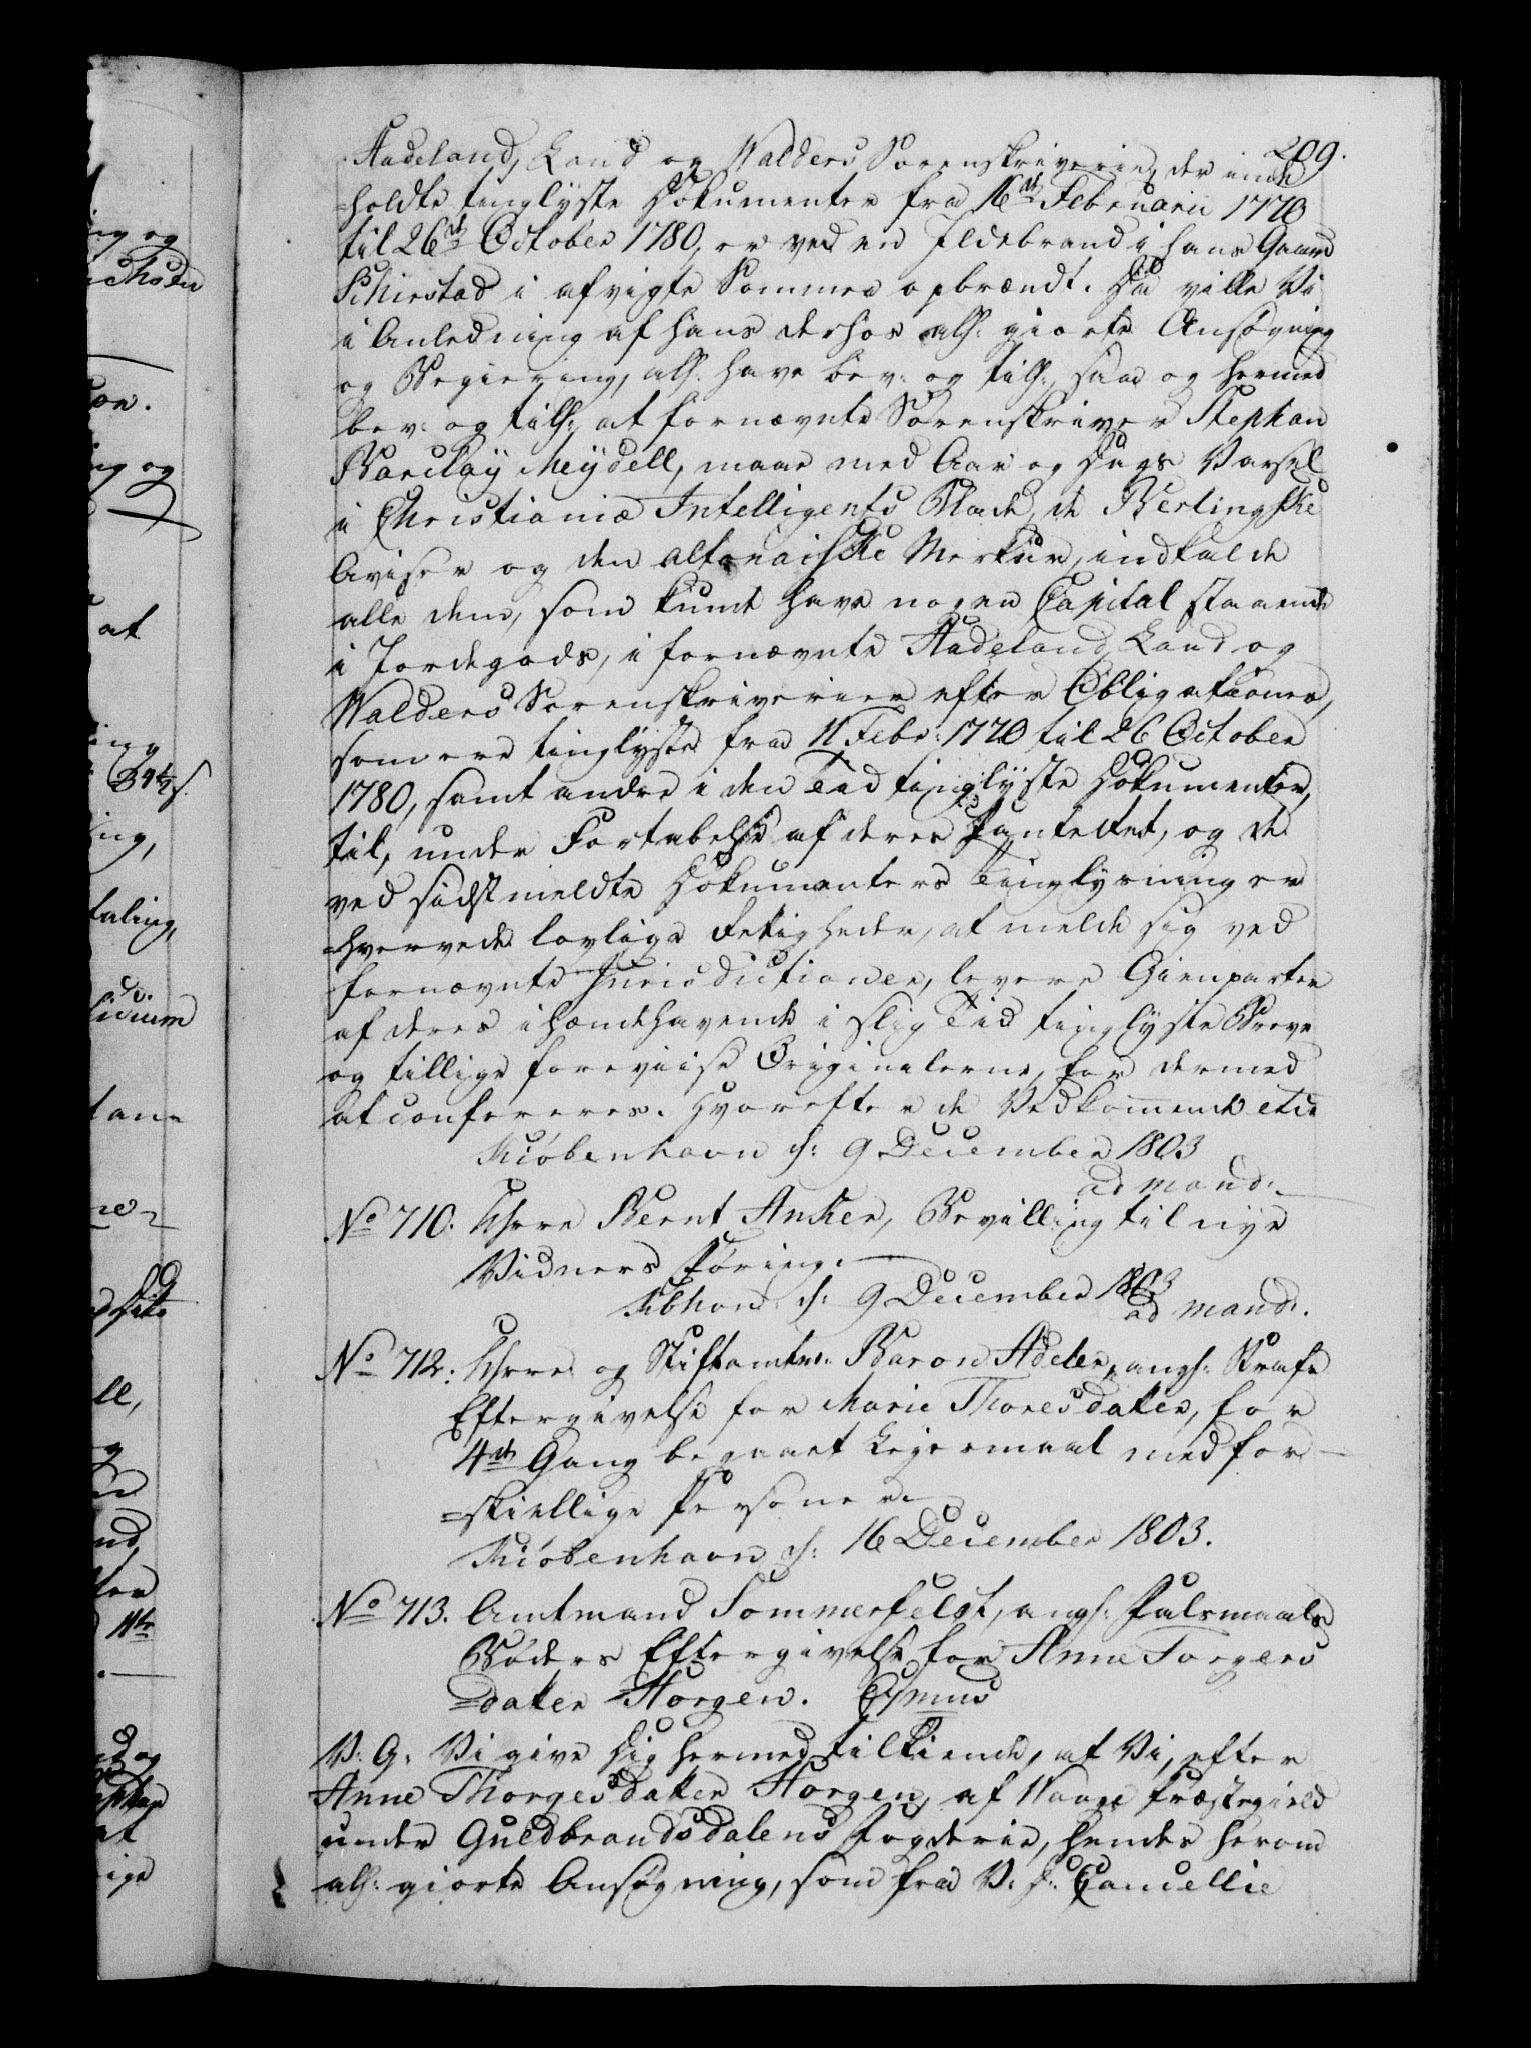 209.
Hadeland, Land og Walders Sorenskriverie, der inde
=holdte tinglyste Dokumenter fra 16de Februarii 1770
til 26de October 1780, er ved en Ildebrand i hans Gaard
i afvigte Sommer opbrændt. Da ville Vi
i Anledning af hans derhos allr: giorte Ansøgning
og Begiering, allr: have bev: og till:, saa og hermed
bev: og till:, at fornævnte Sorenskriver Stephan
Barclay Meydell, maae med Aar og Dags Varsel
i Christiania Intelligents Blade, de Berlingske
Aviser og den altonaiske Merkur, indkalde
alle dem, som kunde have nogen Capital staaende
i Jordegods, i fornævnte Hadeland, Land og
Walders Sorenskriverier efter Obligationer,
som ere tinglyste fra 11 Febr: 1770 til 26 October
1780, samt andre i den Tid tinglyste Dokumenter,
til, under Fortabelse af deres Panteret, og de
ved sidstmeldte Dokumenters Tinglysning er
=hvervede lovlige Rettigheder, at melde sig ved
fornævnte Jurisdictioner, levere Gienparter
af deres ihændehavende i slig Tid tinglyste Breve
og tillige foreviise Originalerne, for dermed
at confereres. Hvorefter de Vedkommende etc
Kiøbenhavn d: 9 December 1803
ad mand:
No 710. Bernt Anker, Bevilling til nye
Vidners Føring.
Kbhavn d: 9 December 1803
ad mand:
No 712. og Stiftamtm: Baron Adeler, angl: Straf
Eftergivelse for Marie Thoresdatter, for
4de Gang begaaet Leyermaal med for
=skiellige Personer.
Kiøbenhavn d: 16 December 1803.
No 713. Amtmand Sommerfeldt, angl: Falsmaals
Bøders Eftergivelse for Anne Torgers
=datter Horgen.
V: G: Vi give Dig hermed tilkiende, at Vi, efter
Anne Thorgersdatter Horgen, af Waage Præstegield
under Guldbrandsdalens Fogderie, hendes herom
allr: giorte Ansøgning, som fra V: D: Cancellie